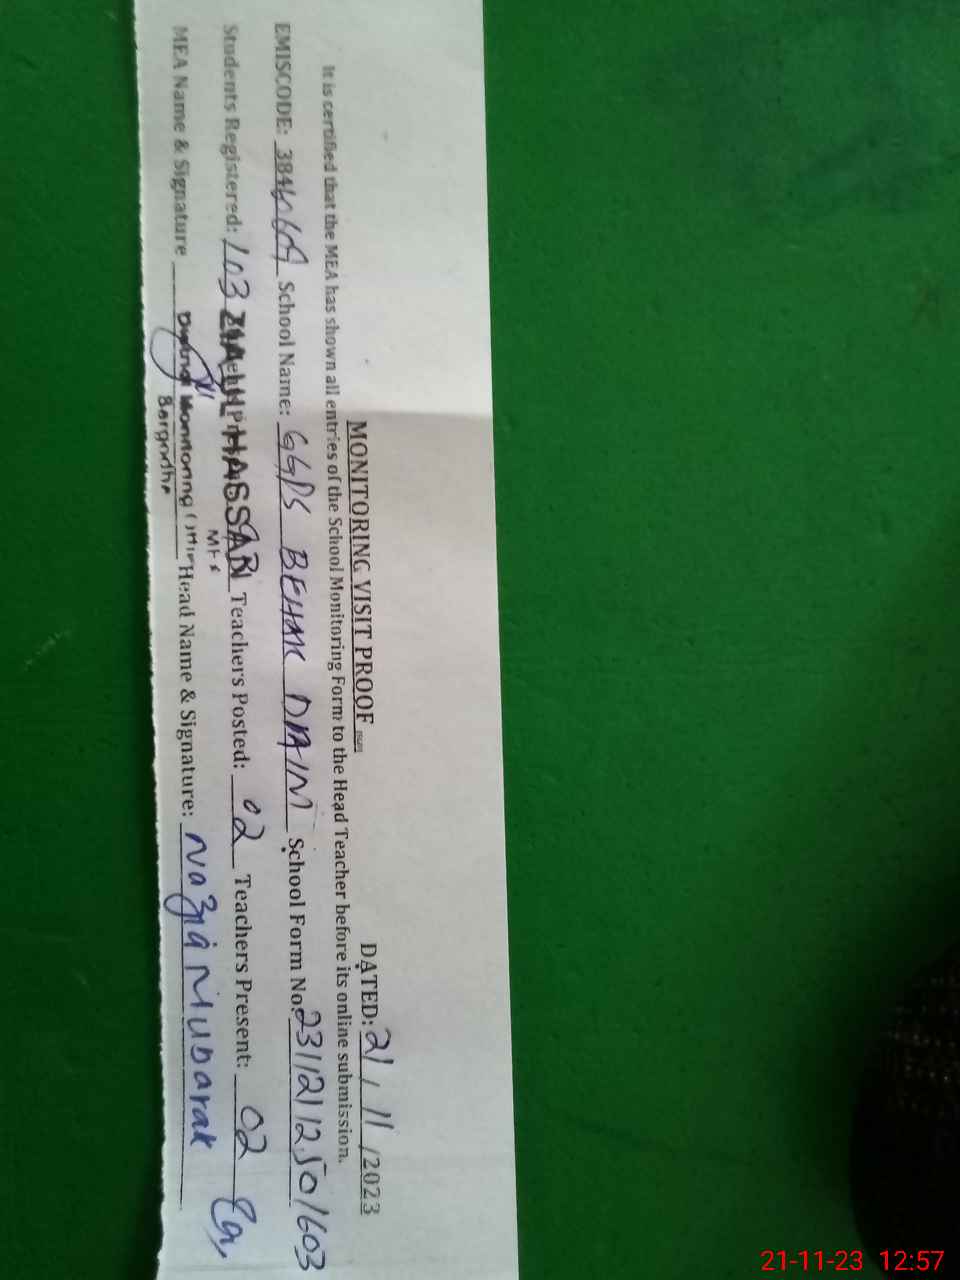 MONITORING VISIT PROOF
DATED: 21/11/2023
It is certified that the MEA has shown all entries of the School Monitoring Form to the Head Teacher before its online submission.
EMISCODE: School Name: GGPS BEHAK DAIM School Form No: 23112112501603
Students Registered: 103 ZIA UL HASSAN Teachers Posted: 02 Teachers Present: 02
MEA
MEA Name & Signature Monitoring Head Name & Signature: Nazia Mubarak
21-11-23 12:57